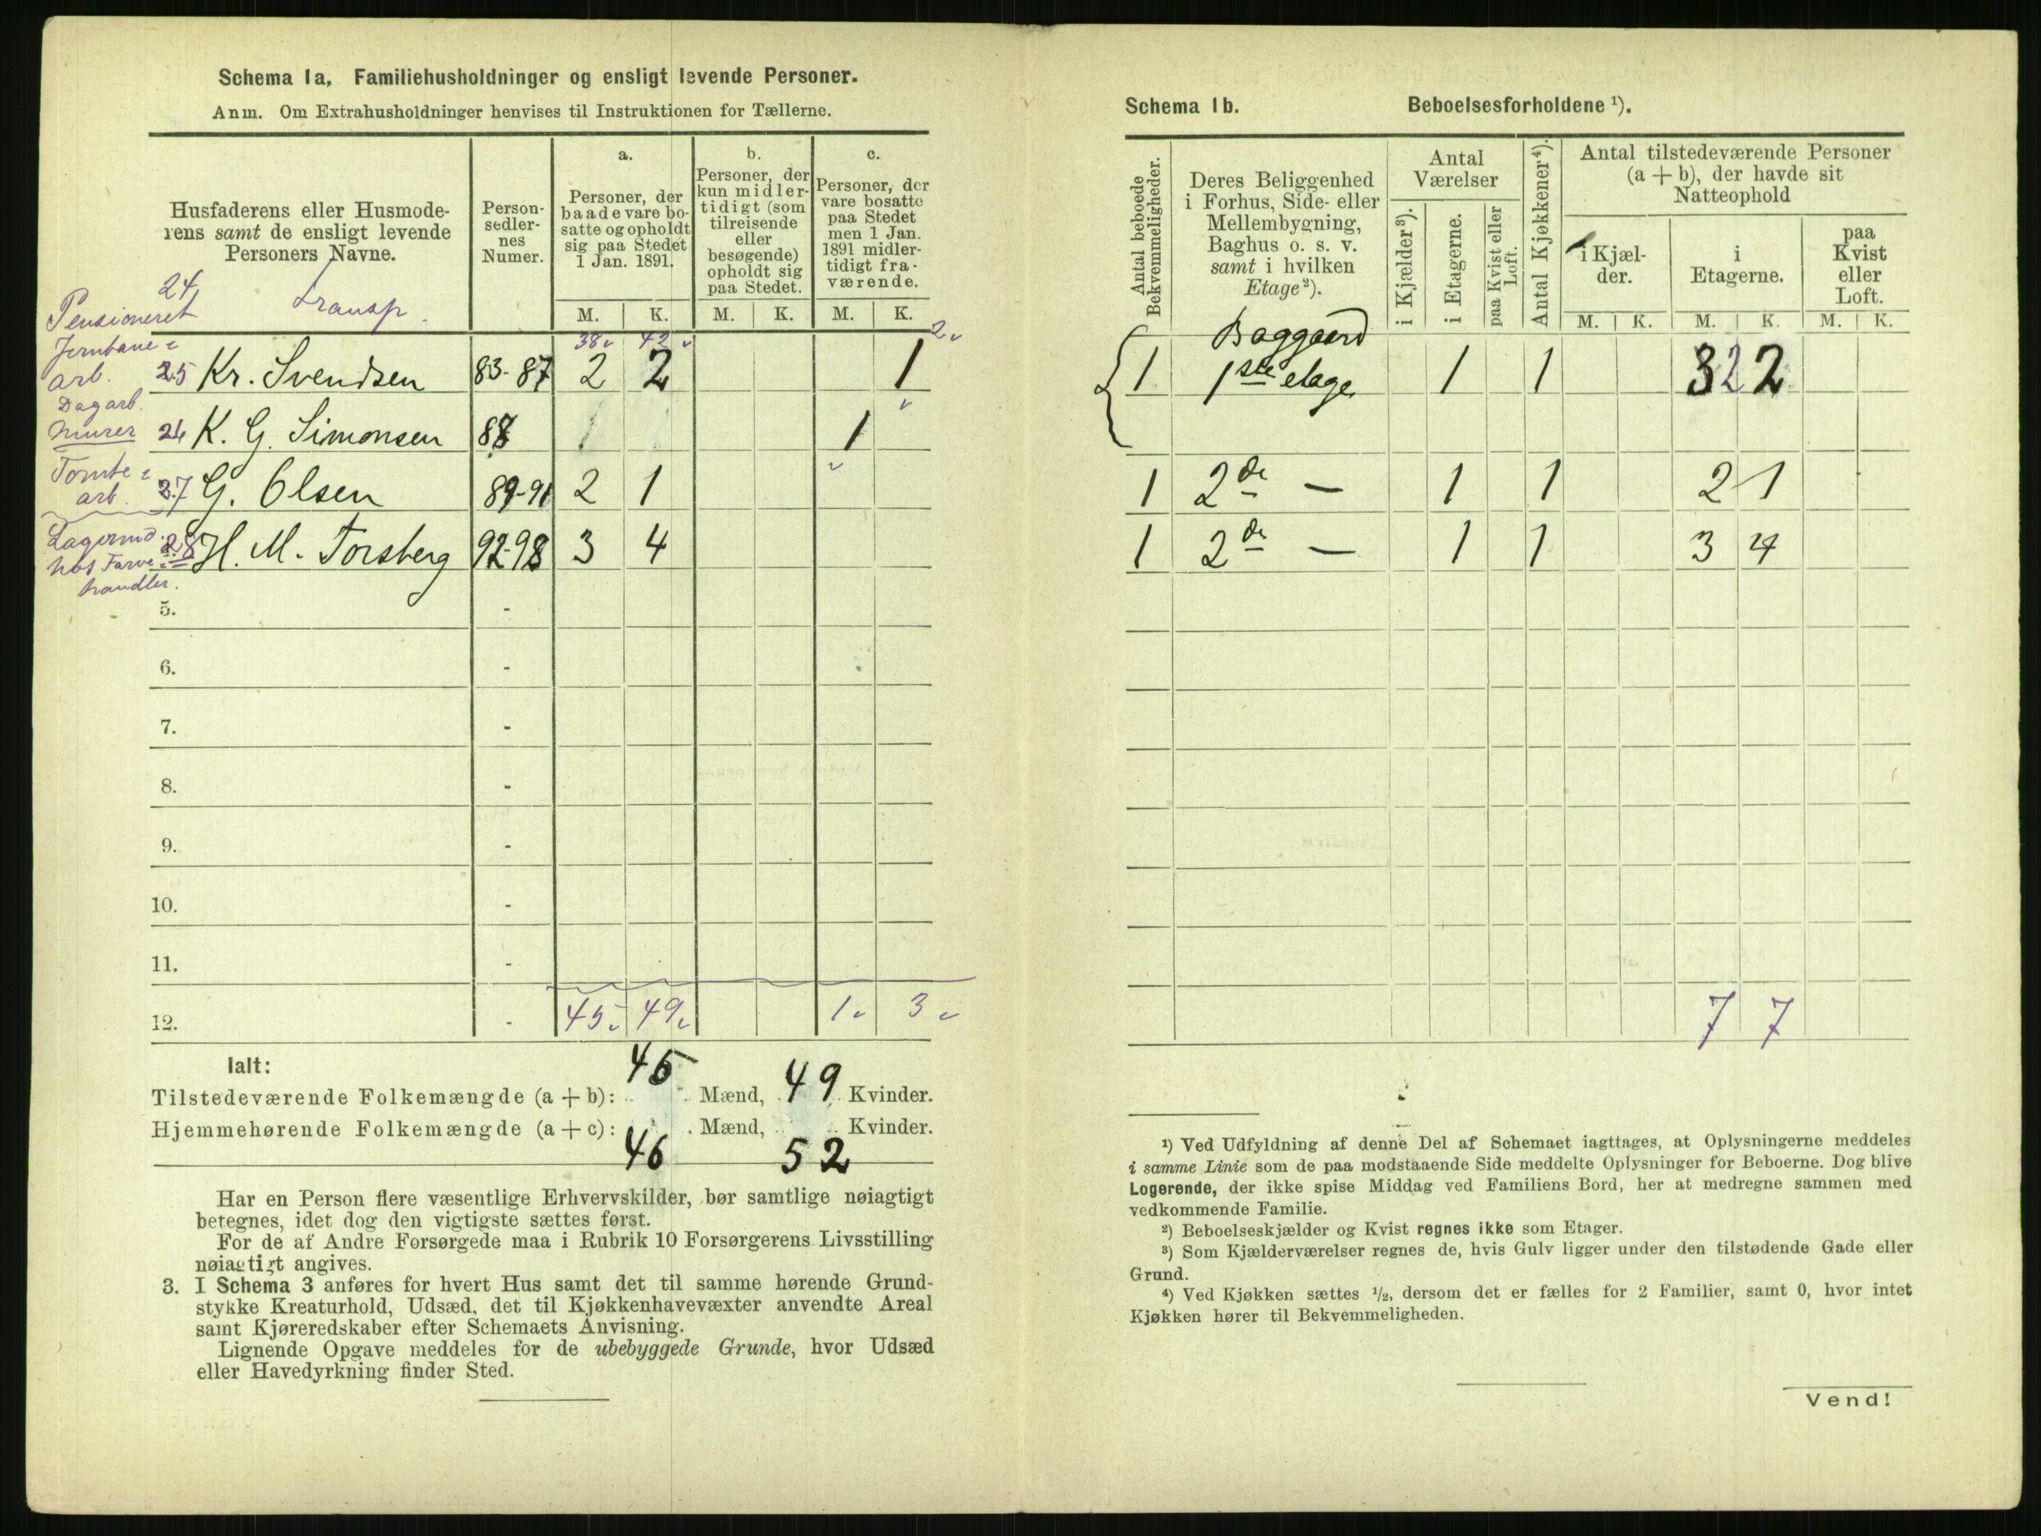 Schema 1a, Familiehusholdninger og ensligt levende Personer.
Anm. Om Extrahusholdninger henvises til Instruktionen for Tællerne.
Husfaderens eller Husmode-
rens samt de ensligt levende
Personers Navne.
Person-
sedler-
nes
Numer.
a.
Personer, der
baade vare bo-
satte og opholdt
sig paa Stedet
1 Jan. 1891.
b.
Personer, der
kun midler-
tidigt (som
tilreisende
eller
besøgende)
opholdt sig
paa Stedet.
c.
Personer, der
vare bosatte
paa Stedet
men 1 Jan.
1891 midler-
tidigt fra-
værende.
M. K. M. K. M. K.
24 Transp.
38 42 2
Pensioneret
Jernbane-
arb. 25 Kr. Svendsen 83-87 2 2 1
Dagarb.
Murer 26 K. G. Simonsen 88 1
Tomte-
arb. 27 G. Olsen 89-91 2 1
Lagermd.
hos Farve-
handler. 28 H. M. Forsberg 92-98 3 4
5. -
6. -
7. -
8. -
9. -
10. -
11. -
12. - 45 49 1 3
Ialt:
Tilstedeværende Folkemængde (a + b): 45 Mænd, 49 Kvinder.
Hjemmehørende Folkemængde (a + c): 46 Mænd, 52 Kvinder.
Har en Person flere væsentlige Erhvervskilder, bør samtlige nøiagtigt
betegnes, idet dog den vigtigste sættes først.
For de af Andre Forsørgede maa i Rubrik 10 Forsørgerens Livsstilling
nøiagtigt angives.
3. I Schema 3 anføres for hvert Hus samt det til samme hørende Grund-
stykke Kreaturhold, Udsæd, det til Kjøkkenhavevæxter anvendte Areal
samt Kjøreredskaber efter Schemaets Anvisning.
Lignende Opgave meddeles for de ubebyggede Grunde, hvor Udsæd
eller Havedyrkning finder Sted.
Schema 1b. Beboelsesforholdene ¹).
Antal beboede
Bekvemmeligheder.
Deres Beliggenhed
i Forhus, Side- eller
Mellembygning,
Baghus o. s. v.
samt i hvilken
Etage²).
Antal
Værelser
i Kjælder³).
i Etagerne.
paa Kvist eller
Loft.
Antal Kjøkkener⁴).
Antal tilstedeværende Personer
(a + b), der havde sit
Natteophold
i Kjæl-
der.
i
Etagerne.
paa
Kvist
eller
Loft.
M. K. M. K. M. K.
Baggaard
1 1ste etage 1 1 3 2 2
1 2de — 1 1 2 1
1 2de — 1 1 3 4
7 7
¹) Ved Udfyldning af denne Del af Schemaet iagttages, at Oplysningerne meddeles
i samme Linie som de paa modstaaende Side meddelte Oplysninger for Beboerne. Dog blive
Logerende, der ikke spise Middag ved Familiens Bord, her at medregne sammen med
vedkommende Familie.
²) Beboelseskjælder og Kvist regnes ikke som Etager.
³) Som Kjælderværelser regnes de, hvis Gulv ligger under den tilstødende Gade eller
Grund.
⁴) Ved Kjøkken sættes ½, dersom det er fælles for 2 Familier, samt 0, hvor intet
Kjøkken hører til Bekvemmeligheden.
Vend!